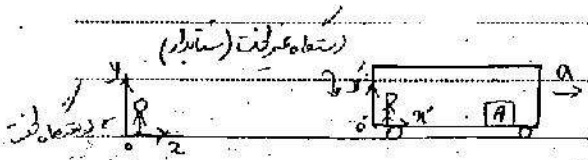 دستگاه غیر لخت (شتابدار)
y
o
x
دستگاه لخت
y'
o'
x'
A
a